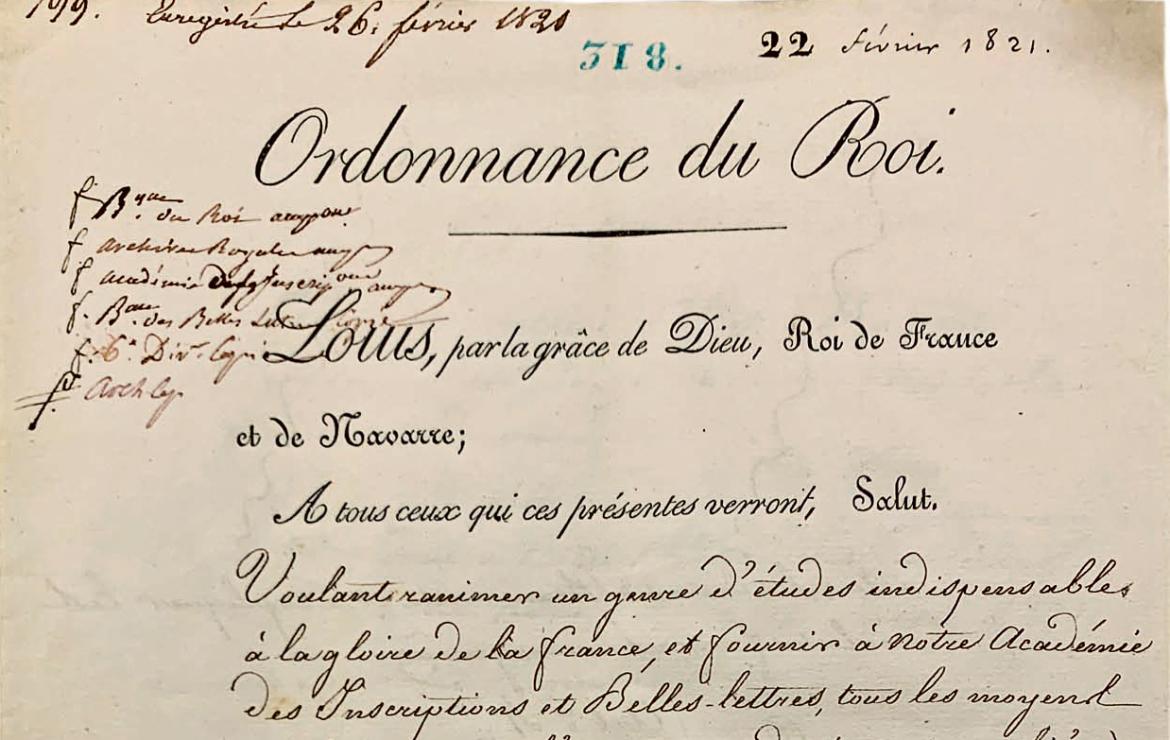 199. Enregistré le 26. février 1821
318. 22 février 1821.
Ordonnance du Roi.
f. Bque du Roi
f. archives Royales
f. académie Des Inscriptions
f. Bque des Belles Lettres
f. 6e Div.
Arch
Louis, par la grâce de Dieu, Roi de France
et de Navarre;
A tous ceux qui ces présentes verront, Salut.
Voulant ranimer un genre d'études indispensables
à la gloire de la france, et fournir à notre Académie
des Inscriptions et Bélles-lettres, tous les moyens